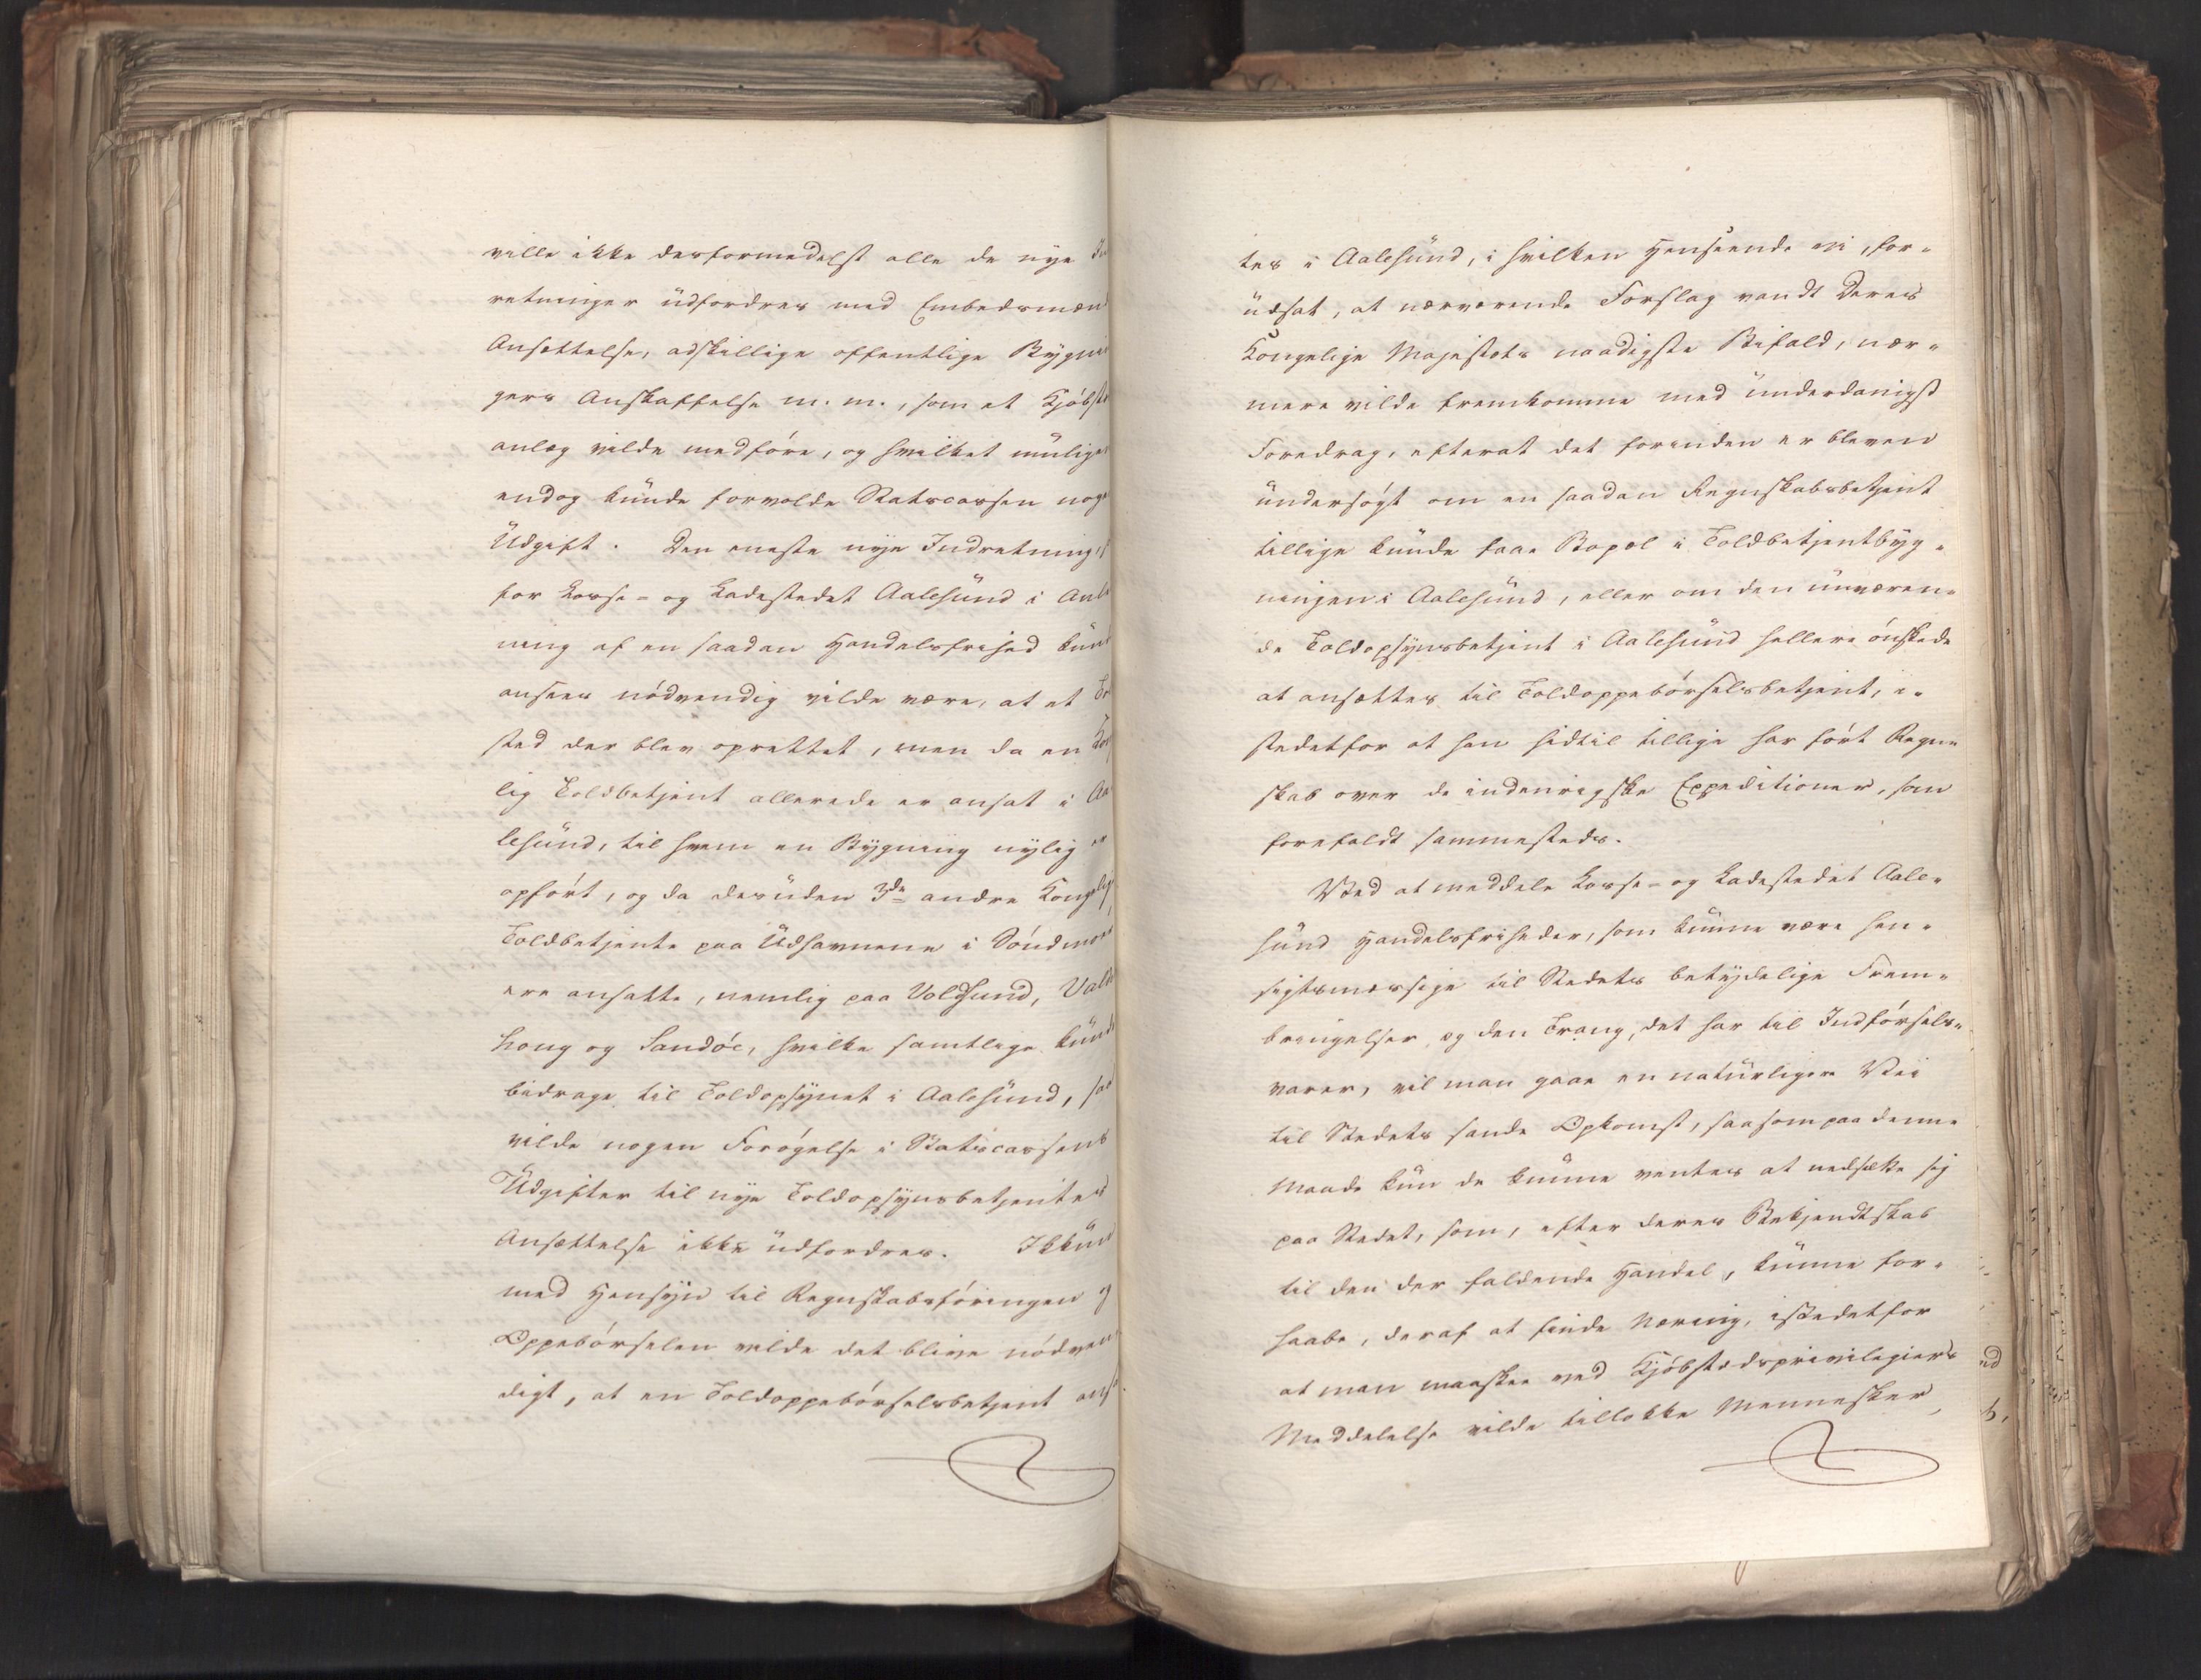 ville ikke desformedelst alle de nye In
retninger udfordres med Embedsmæn
Ansættelse, adskillige offentlige Bygni
gers Anskaffelse m. m., som et Kjøbst
anlæg vilde medføre, og hvilket mulige
endog kunde forvolde Statscassen nog
Udgift. Den eneste nye Indretning, s
for Losse- og Ladestedet Aalesund i Anl
ning af en saadan Handelsfrihed kun
ansees nødvendig vilde være, at et Tol
sted der blev oprettet, men da en Kon
lig Toldbetjent allerede er ansat i Aa
lesund, til hvem en Bygning nylig er
opført, og da desuden 3de andre Kongelige
Toldbetjente paa Udhavnene i Søndmør
ere ansatte, nemlig paa Voldsund, Valde
houg og Sandøe, hvilke samtlige kund
bidrage til Toldopsynet i Aalesund, saa
vilde nogen Forøgelse i Statscassens
Udgifter til nye Toldopsynsbetjentes
Ansættelse ikke udfordres. Ikkun
med Hensyn til Regnskabsføringen og
Oppebørselen vilde det blive nødven
digt, at en Toldoppebørselsbetjent ans
tes i Aalesund, i hvilken Henseende vi, for-
udsat, at nærværende Forslag vandt Deres
Kongelige Majestæts naadigste Bifald, nær-
mere vilde fremkomme med underdanigst
Foredrag, efterat det forinden er bleven
undersøgt om en saadan Regnskabsbetjent
tillige kunde faae Bopæl i Toldbetjentbyg-
ningen i Aalesund, eller om den nuværen-
de Toldopsynsbetjent i Aalesund hellere ønskede
at ansættes til Toldoppebørselsbetjent, i-
stedetfor at han hidtil tillige har ført Regn-
skab over de indenrigske Expeditioner, som
forefaldt sammesteds.
Ved at meddele Losse- og Ladestedet Aale-
sund Handelsfriheder, som kunne være hen-
sigtsmæssige til Stedets betydelige Frem-
bringelser og den Trang, det har til Indførsels-
varer, vil man gaae en naturligere Vei
til Stedets sande Opkomst, saasom paa denne
Maade kun de kunne ventes at nedsætte sig
paa Stedet, som, efter deres Bekjendtskab
til den der faldende Handel, kunne for-
haabe, deraf at finde Næring, istedetfor
at man maaskee ved Kjøbstædsprivilegiers
Meddelelse vilde tillokke Mennesker,